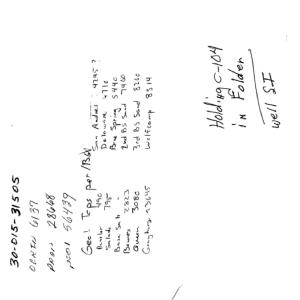 30-015-31505
OGRID 6137
PROP 28668
POOL 56439
Geol Tops per
Rustler 490
Salado 795
Base Salt -
Bowers 2823
Queen 3080
San Andres 4245?
Delaware 4710
Bone Spring 5440
2nd BS Sand 7460
3rd BS Sand 8210
Wolfcamp 8514
Holding C-104
in Folder
well SI